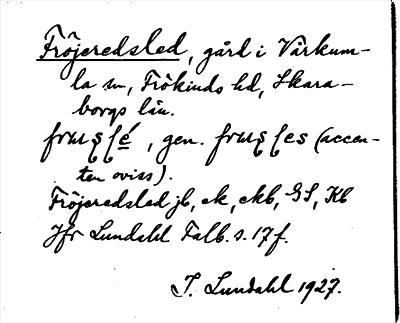 Fröjeredsled, gård i Vårkum-
la sn, Frökinds hd, Skara-
borgs län.
, gen. (accen-
ten oviss).
Fröjeredsled jb, ek, ekb, GS, Kb
Jfr Lundahl Falb. s. 17 f.
I. Lundahl 1927.